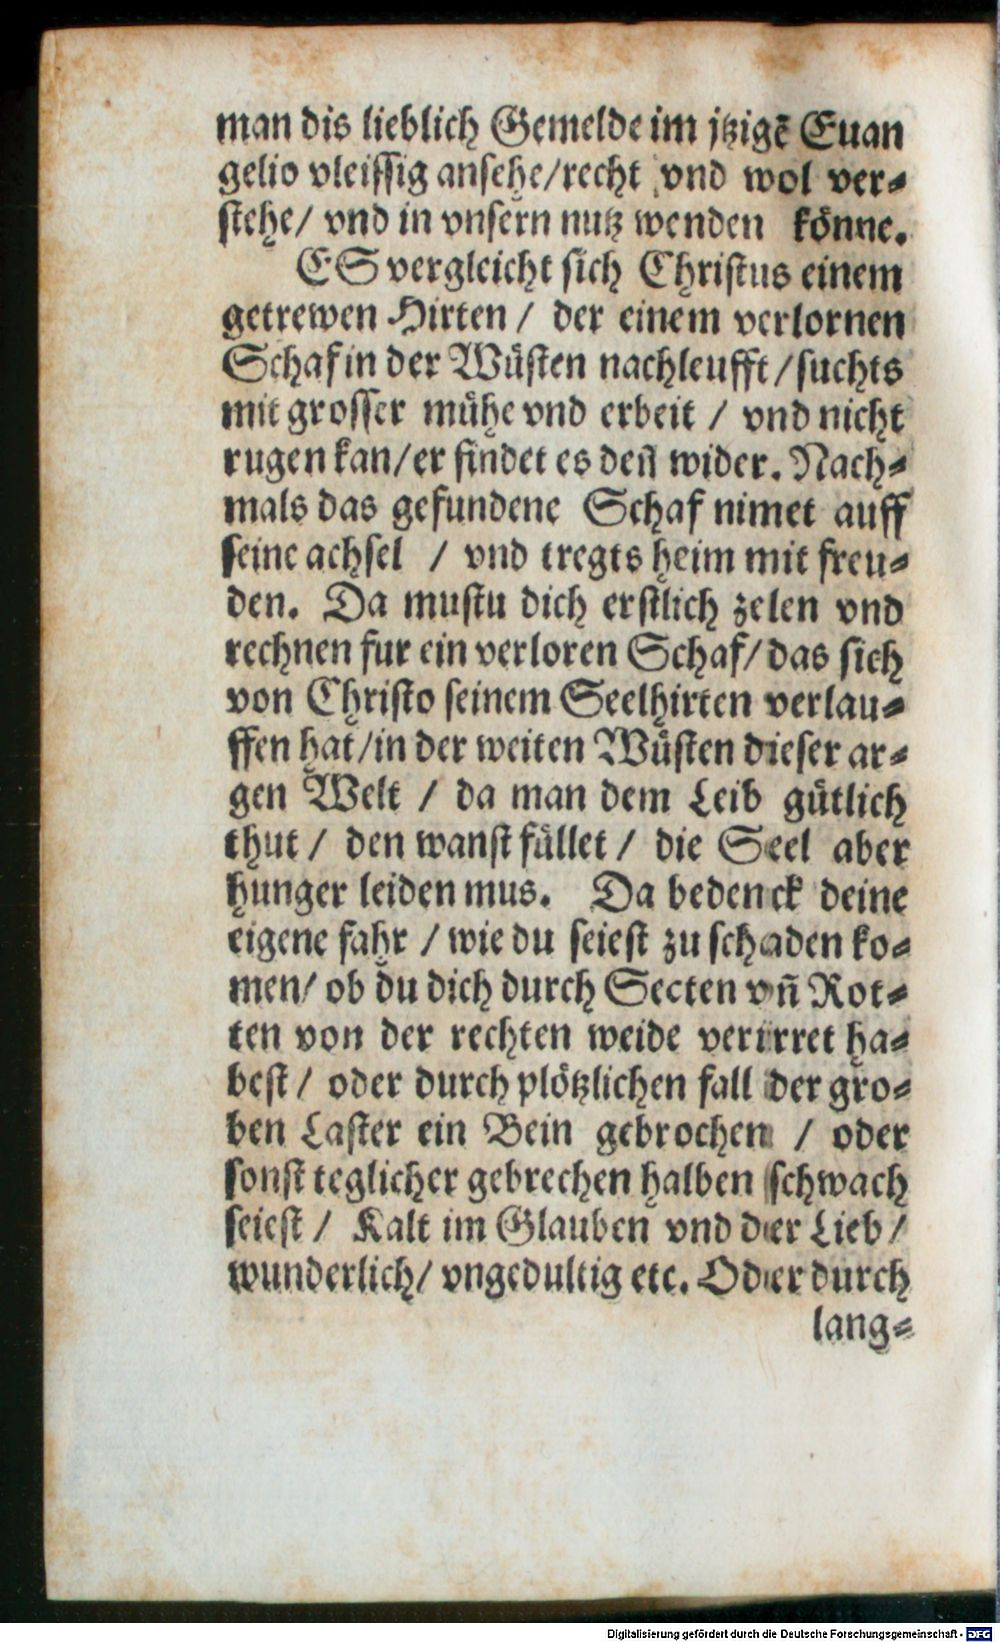 man dis lieblich Gemelde im jtzigē Euan
gelio vleissig ansehe/recht vnd wol ver⸗
stehe/ vnd in vnsern nutz wenden könne.
ES vergleicht sich Christus einem
getrewen Hirten / der einem verlornen
Schaf in der Wüsten nachleufft / suchts
mit grosser mühe vnd erbeit / vnd nicht
rugen kan/er findet es deñ wider. Nach⸗
mals das gefundene Schaf nimet auff
seine achsel / vnd tregts heim mit freu⸗
den. Da mustu dich erstlich zelen vnd
rechnen fur ein verloren Schaf/ das sich
von Christo seinem Seelhirten verlau⸗
ffen hat/in der weiten Wüsten dieser ar⸗
gen Welt / da man dem Leib gütlich
thut / den wanst füllet / die Seel aber
hunger leiden mus. Da bedenck deine
eigene fahr / wie du seiest zu schaden ko⸗
men/ ob du dich durch Secten vñ Rot⸗
ten von der rechten weide verirret ha⸗
best / oder durch plötzlichen fall der gro⸗
ben Laster ein Bein gebrochen / oder
sonst teglicher gebrechen halben schwach
seiest / Kalt im Glauben vnd der Lieb /
wunderlich/ vngedultig etc. Oder durch
lang⸗
Digitalisierung gefördert durch die Deutsche Forschungsgemeinschaft - DFG